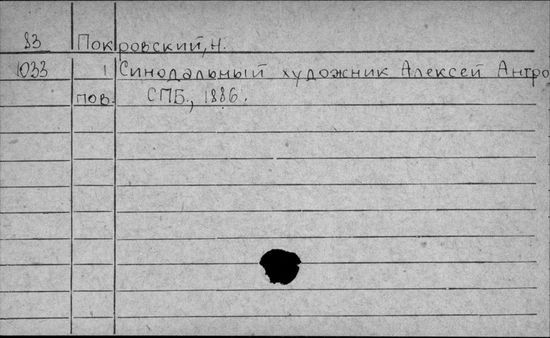 83 Покровский, Н.
1033 1 Синодальный художник Алексей Антро
пов. СПБ., 1886.